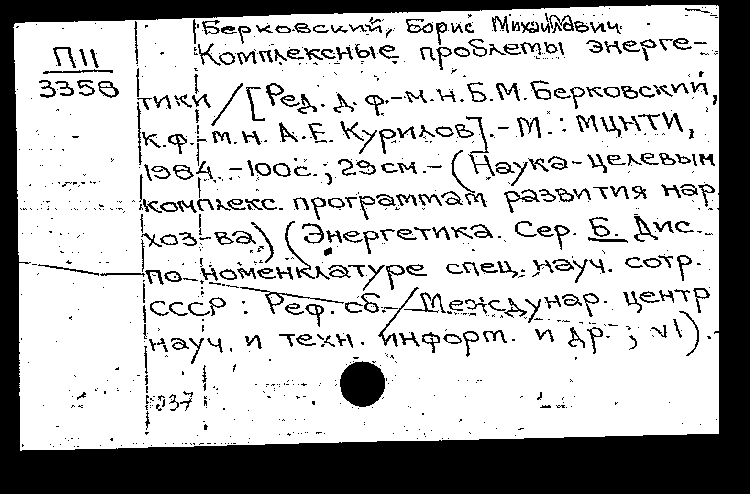 Берковский, Борис Михайлович
П11
3358
Комплексные проблемы энерге-
тики / [Ред. д. ф.-м.н. Б.М. Берковский,
к.ф.-м.н. А.Е. Курилов]. - М. : МЦНТИ,
1984. - 100с.; 29см. - (Наука-целевым
комплекс. программам развития нар.
хоз-ва) (Энергетика. Сер. Б. Дис.
по номенклатуре спец. науч. сотр.
СССР : Реф. сб. / Междунар. центр
науч. и техн. информ. и др. ; v1). -